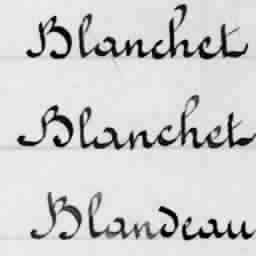 Blanchet
Blanchet
Blandeau